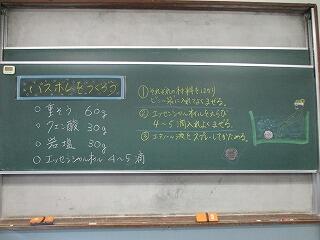 バスボムをつくろう
○ 重そう 60g
○ クエン酸 30g
○ 岩塩 30g
○ エッセンシャルオイル 4～5滴
① それぞれの材料をはかり
に入れてよくまぜる。
② エッセンシャルオイルをえらび
4～5滴入れよくまぜる。
③ エタノール液をスプレーしてかためる。